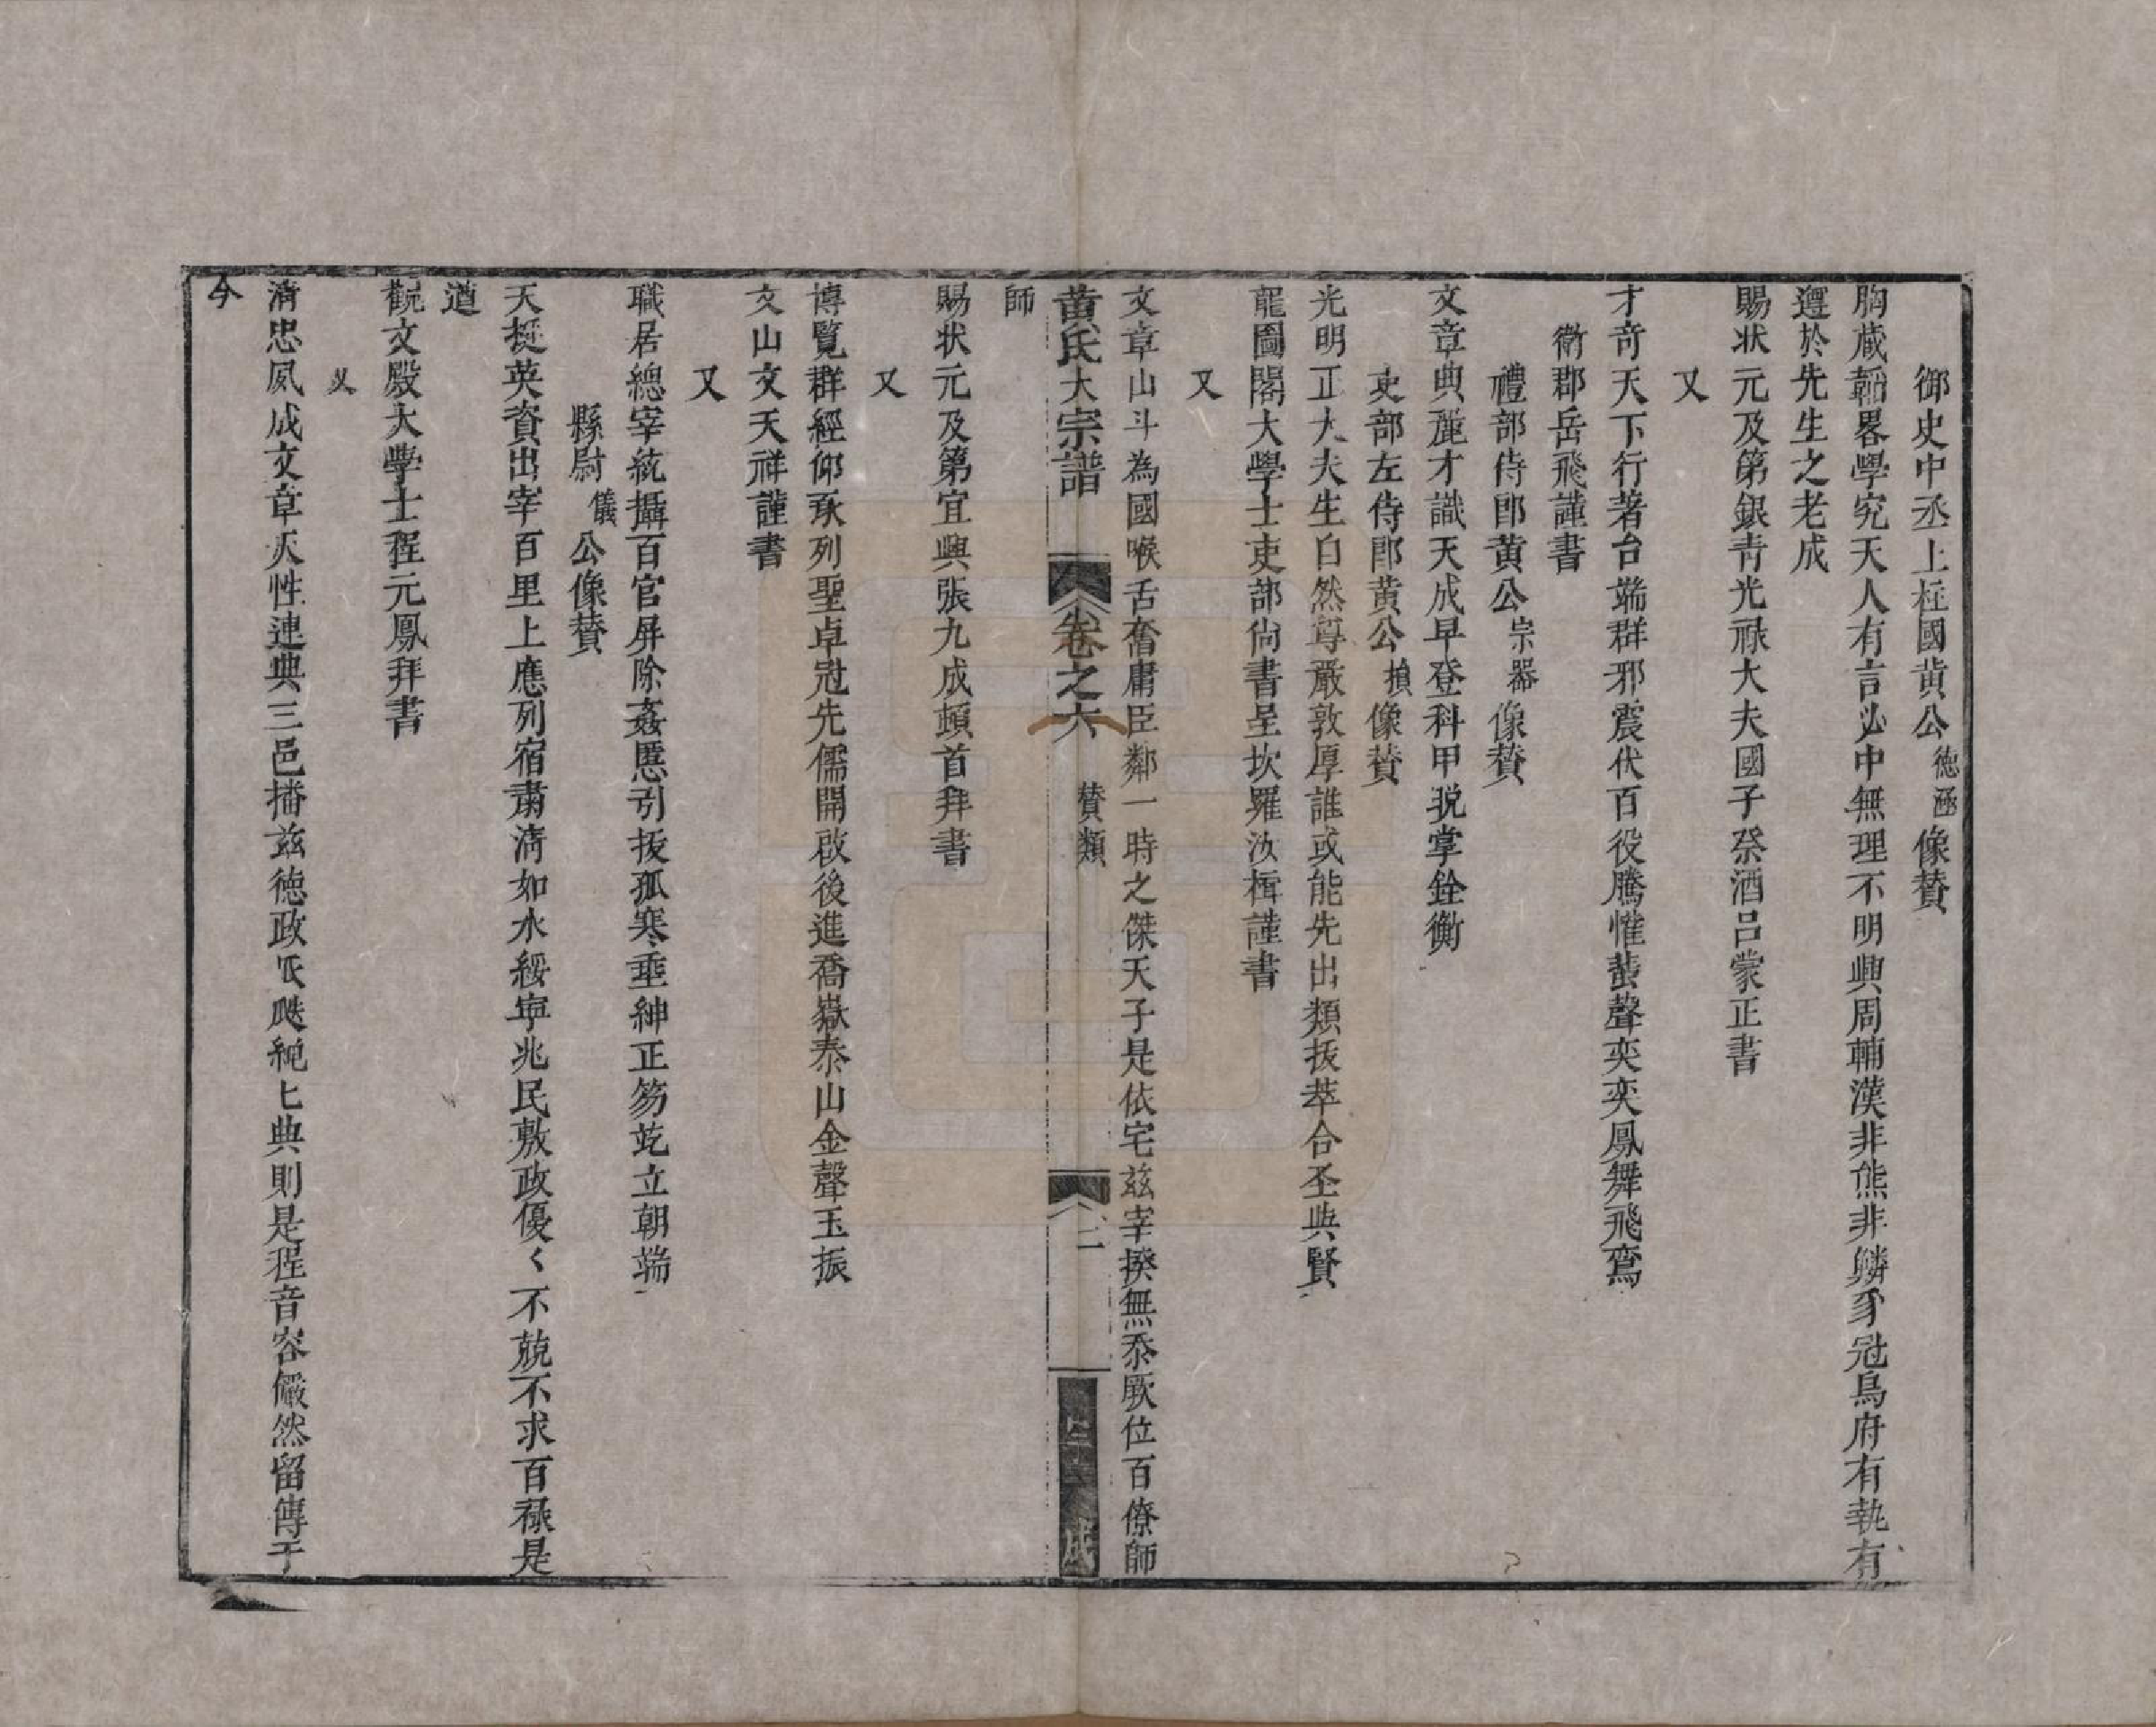 御史中丞上柱國黄公德涵像賛
胸蔵韜畧學究天人有言必中無理不明興周輔漢非熊非麟豸冠烏府有執有
遵於先生之老成
賜状元及第銀青光祿大夫國子祭酒吕蒙正書
又
才奇天下行著台端群邪震伏百役騰惟蜚聲奕奕鳳舞飛鸞
衛郡岳飛謹書
禮部侍郎黄公宗器像賛
文章典麗才識天成早登科甲晚掌銓衡
吏部左侍郎黄公損像賛
光明正大夫生自然尊嚴敦厚誰或能先出類抜萃合丕與賢
龍圖閣大學士吏部尚書呈坎羅汝楫謹書
又
文章山斗為國喉舌奮庸臣鄰一時之傑天子是依宅兹宰揆無忝厥位百僚師
黄氏大宗譜 卷之六 賛類 二
師
賜状元及第宜興張九成頓首拜書
又
博覧群經仰承列聖卓冠先儒開啟後進喬嶽泰山金聲玉振
文山文天祥謹書
又
職居總宰統攝百官屏除姦慝引抜孤寒垂紳正笏屹立朝端
縣尉儀公像賛
天挺英資出宰百里上應列宿肅清如水綏寧兆民敷政優〱不兢不求百祿是
遒
觀文殿大學士程元鳳拜書
又
清忠夙成文章天性連典三邑播兹德政民飈純上典則是程音容儼然留傳于
今